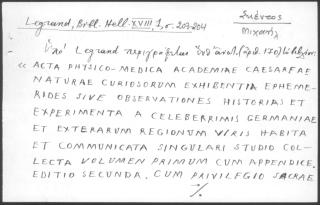 Legrand, Bibl. Hell. XVIII, 1, σ. 203-204
Σκένδος
Μιχαήλ
Ὑπὸ Legrand περιγράφεται ἐνθ' ἀνωτ. (ἀριθ. 170)
« ACTA PHYSICO-MEDICA ACADEMIAE CAESARFAE
NATURAE CURIOSORUM EXHIBENTIA EPHEME-
RIDES SIVE OBSERVATIONES HISTORIAS ET
EXPERIMENTA A CELEBERRIMIS GERMANIAE
ET EXTERARUM REGIONUM VIRIS HABITA
ET COMMUNICATA SINGULARI STUDIO COL-
LECTA VOLUMEN PRIMUM CUM APPENDICE.
EDITIO SECUNDA. CUM PRIVILEGIO SACRAE
./.